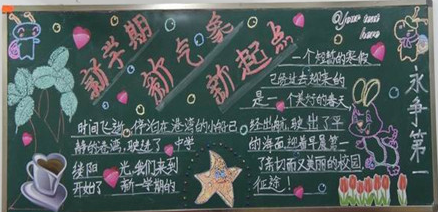 新学期
新气象
新起点
Your text
here
一个短暂的寒假
已经过去迎来的
是一个美好的春天
永争第一
时间飞逝,停泊在港湾的小船已
静的港湾,驶进了
缕阳光,我们来到
开始了新一学期的
经出航,驶出了平
的海面,迎着早晨第一
了亲切而又美丽的校园
征途!